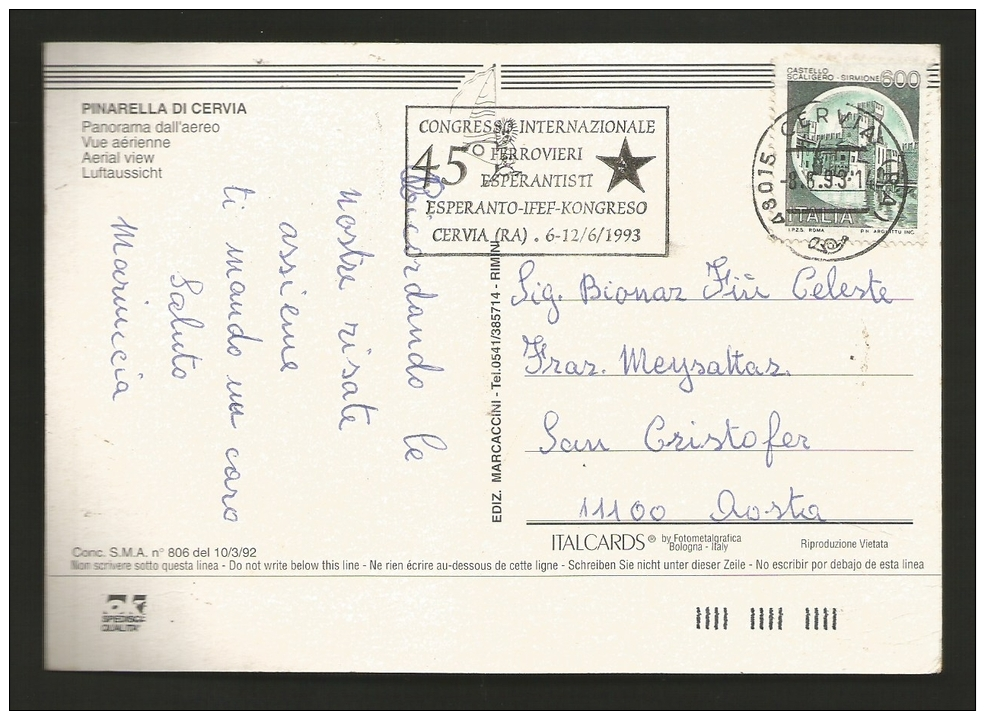 PINARELLA DI CERVIA
Panorama dall'aereo
Vue aérienne
Aerial view
Luftaussicht
CONGRESSO INTERNAZIONALE
45° FERROVIERI
ESPERANTISTI
ESPERANTO-IFEF-KONGRESO
CERVIA (RA) . 6-12/6/1993
CASTELLO
SCALIGERO - SIRMIONE 600
ITALIA
I.P.Z.S. ROMA
48015 CERVIA (RA)
-8.6.93-1
Ricordando le
nostre risate
assieme
ti mando un caro
Saluto
Mariuccia
EDIZ. MARCACCINI - Tel.0541/385714 - RIMINI
Sig. Bionaz Celeste
Fraz. Meysattaz.
San Cristofer
11100 Aosta
ITALCARDS ® by Fotometalgrafica
Bologna - Italy
Riproduzione Vietata
Conc. S.M.A. n° 806 del 10/3/92
Non scrivere sotto questa linea - Do not write below this line - Ne rien écrire au-dessous de cette ligne - Schreiben Sie nicht unter dieser Zeile - No escribir por debajo de esta linea
ok
SPEDISCE
QUALITA'